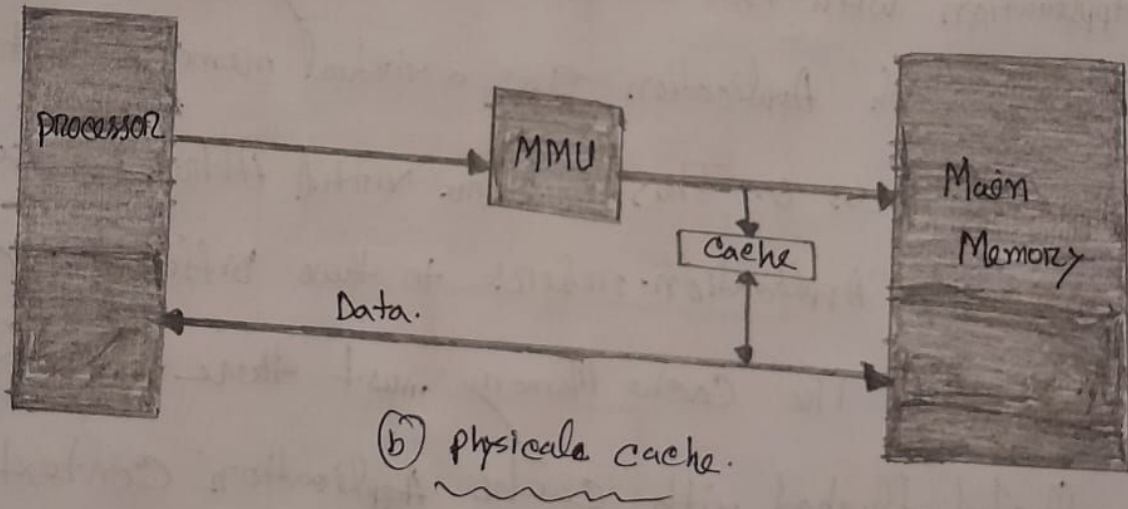 processor
MMU
Main
Memory
Cache
Data.
(b) physicale cache.